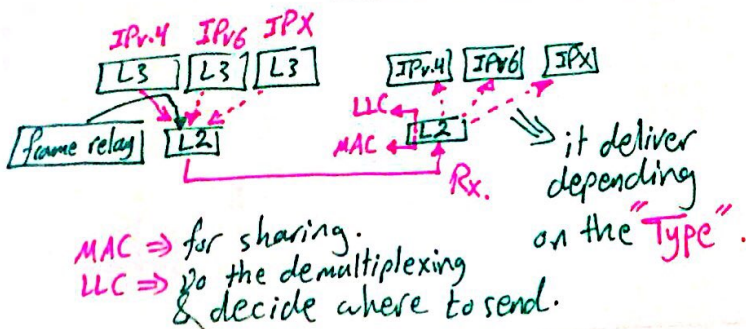 IPv.4 IPv6 IPX
L3 L3 L3
IPv.4 IPv6 IPX
frame relay L2
LLC
MAC
L2
Rx.
it deliver
depending
on the "Type".
MAC ⇒ for sharing.
LLC ⇒ Do the demultiplexing
& decide where to send.